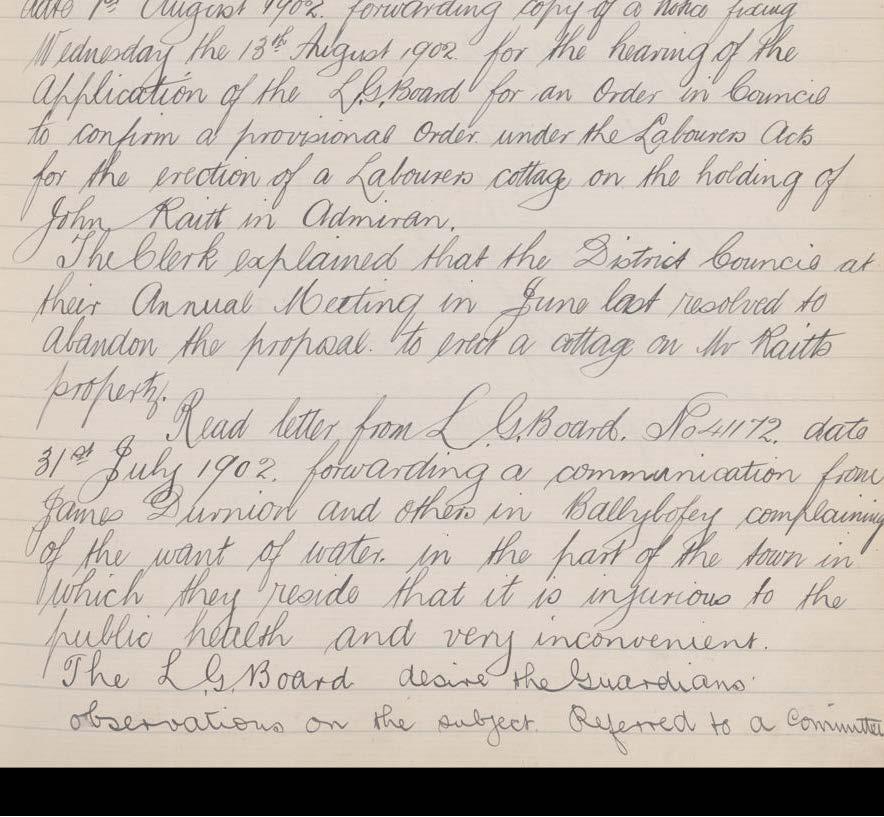 date 1st August 1902. forwarding copy of a notice fixing
Wednesday the 13th August 1902. for the hearing of the
application of the L.G.Board for an Order in Council
to confirm a provisional Order under the Labourers Acts
for the erection of a Labourers cottage on the holding of
John Raitt in Admiran.
The Clerk explained that the District Council at
their Annual Meeting in June last resolved to
abandon the proposal. to erect a cottage on Mr Raitts
property.
Read letter from L.G.Board. No 41172. date
31st July 1902. forwarding a communication from
James Durnion and others in Ballybofey complaining
of the want of water. in the part of the town in
which they reside that it is injurious to the
public health and very inconvenient.
The L.G.Board desire the Guardians
observations on the subject. Referred to a Committee